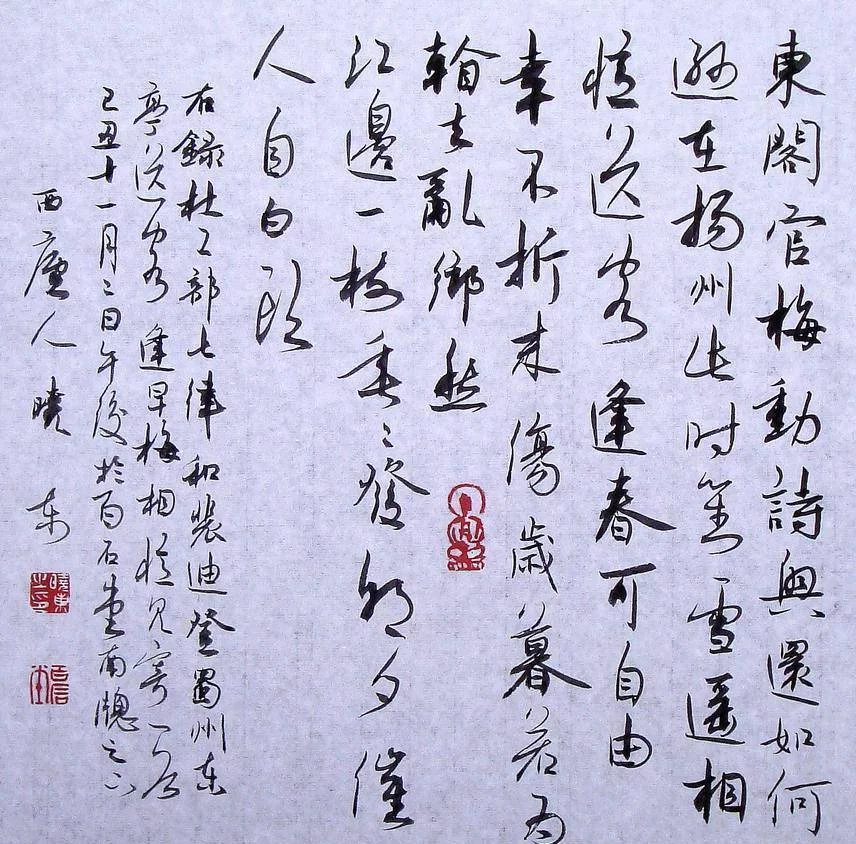 東閣官梅動詩興還如何
遜在揚州此時對雪遥相
憶送客逢春可自由
幸不折来傷歲暮若為
看去亂鄉愁
江邊一樹垂〻發朝夕催
人自白頭
右録杜工部七律和裴迪登蜀州東
亭送客逢早梅相憶見寄一首
己丑十一月二日午後於百石堂南牕之下
西廬人曉東
曉東之印